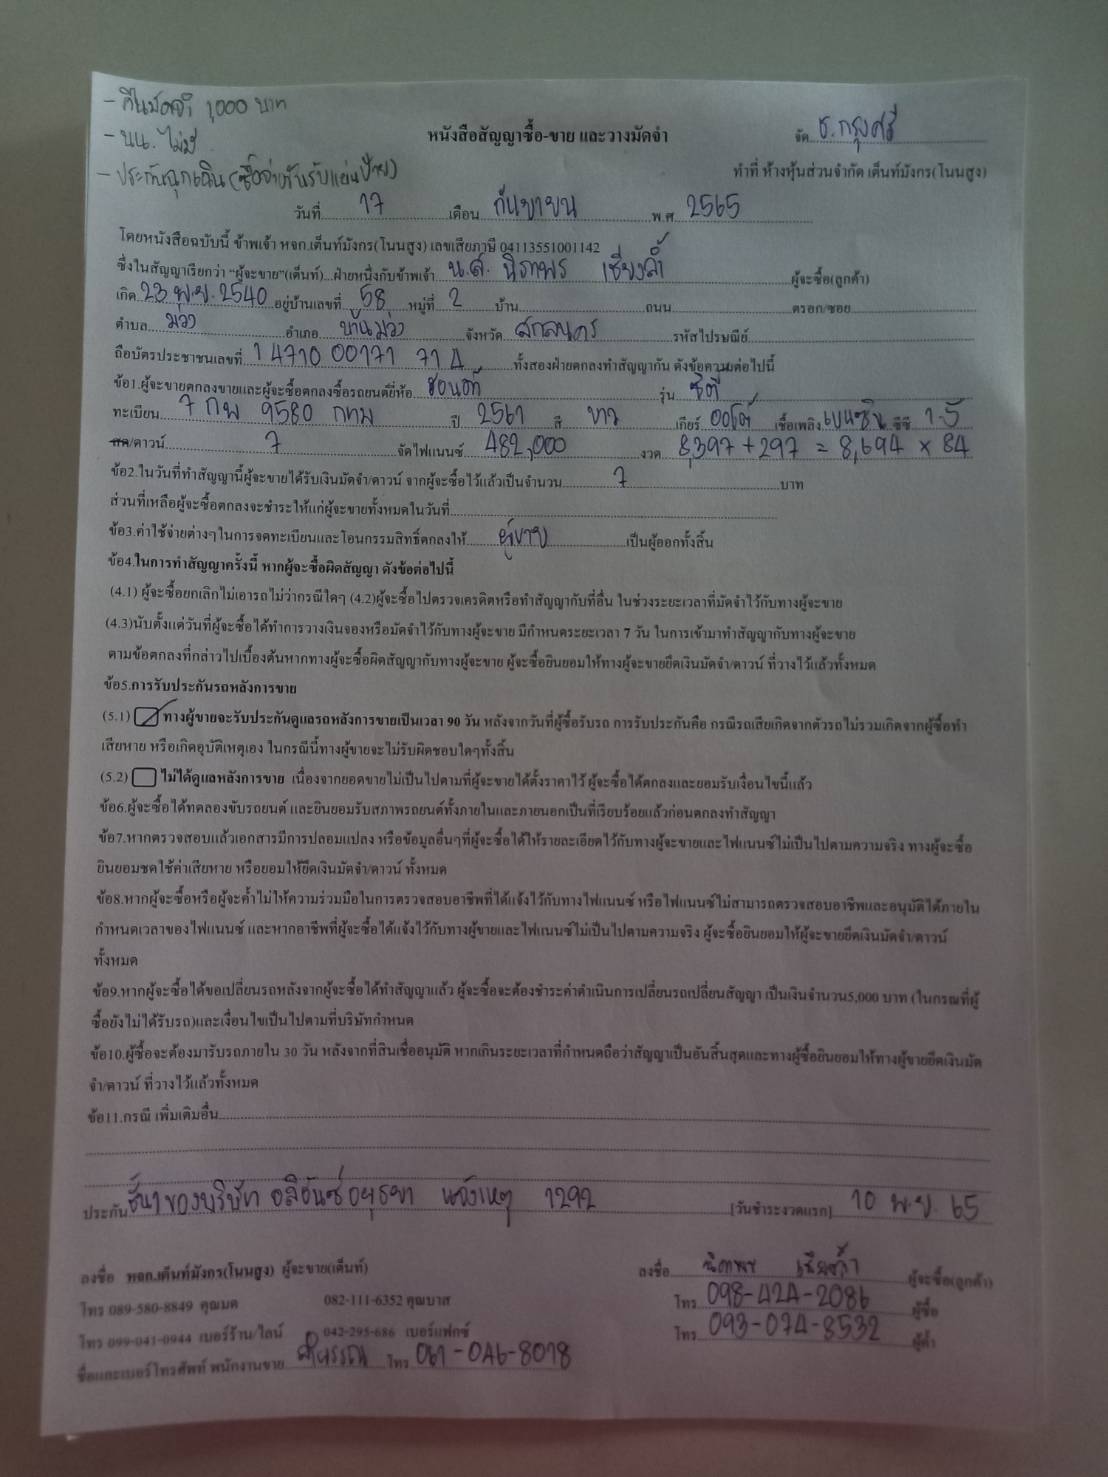 - คืนมัดจำ 1,000 บาท
- นน. ไม่มี
- ประกันฉุกเฉิน (ซื้อจ่ายวันรับแผ่นป้าย)
หนังสือสัญญาซื้อ-ขาย และวางมัดจำ
จัด ธ.กรุงศรี
ทำที่ ห้างหุ้นส่วนจำกัด เต็นท์มังกร(โนนสูง)
วันที่ 17 เดือน กันยายน พ.ศ. 2565
โดยหนังสือฉบับนี้ ข้าพเจ้า หจก.เต็นท์มังกร(โนนสูง) เลขเสียภาษี 04113551001142
ซึ่งในสัญญาเรียกว่า "ผู้จะขาย"(เต็นท์)...ฝ่ายหนึ่งกับข้าพเจ้า น.ส. นิภาพร เชียงล้ำ ผู้จะซื้อ(ลูกค้า)
เกิด 23 พ.ย. 2540 อยู่บ้านเลขที่ 58 หมู่ที่ 2 บ้าน ถนน ตรอก/ซอย
ตำบล ม่วง อำเภอ บ้านม่วง จังหวัด สกลนคร รหัสไปรษณีย์
ถือบัตรประชาชนเลขที่ 1 4710 00171 71 4 ทั้งสองฝ่ายตกลงทำสัญญากัน ดังข้อความต่อไปนี้
ข้อ1.ผู้จะขายตกลงขายและผู้จะซื้อตกลงซื้อรถยนต์ยี่ห้อ ฮอนด้า รุ่น ซิตี้
ทะเบียน 7 กพ 9580 กทม ปี 2561 สี ขาว เกียร์ ออโต้ เชื้อเพลิง เบนซิน ซีซี 1.5
สด/ดาวน์ 7 จัดไฟแนนซ์ 482,000 งวด 8,397 + 297 = 8,694 x 84
ข้อ2.ในวันที่ทำสัญญานี้ผู้จะขายได้รับเงินมัดจำ/ดาวน์ จากผู้จะซื้อไว้แล้วเป็นจำนวน 7 บาท
ส่วนที่เหลือผู้จะซื้อตกลงจะชำระให้แก่ผู้จะขายทั้งหมดในวันที่
ข้อ3.ค่าใช้จ่ายต่างๆในการจดทะเบียนและโอนกรรมสิทธิ์ตกลงให้ ผู้ขาย เป็นผู้ออกทั้งสิ้น
ข้อ4.ในการทำสัญญาครั้งนี้ หากผู้จะซื้อผิดสัญญา ดังข้อต่อไปนี้
(4.1) ผู้จะซื้อยกเลิกไม่เอารถไม่ว่ากรณีใดๆ (4.2)ผู้จะซื้อไปตรวจเครดิตหรือทำสัญญากับที่อื่น ในช่วงระยะเวลาที่มัดจำไว้กับทางผู้จะขาย
(4.3)นับตั้งแต่วันที่ผู้จะซื้อได้ทำการวางเงินจองหรือมัดจำไว้กับทางผู้จะขาย มีกำหนดระยะเวลา 7 วัน ในการเข้ามาทำสัญญากับทางผู้จะขาย
ตามข้อตกลงที่กล่าวไปเบื้องต้นหากทางผู้จะซื้อผิดสัญญากับทางผู้จะขาย ผู้จะซื้อยินยอมให้ทางผู้จะขายยึดเงินมัดจำ/ดาวน์ ที่วางไว้แล้วทั้งหมด
ข้อ5.การรับประกันรถหลังการขาย
(5.1) ทางผู้ขายจะรับประกันดูแลรถหลังการขายเป็นเวลา 90 วัน หลังจากวันที่ผู้ซื้อรับรถ การรับประกันคือ กรณีรถเสียเกิดจากตัวรถไม่รวมเกิดจากผู้ซื้อทำ
เสียหาย หรือเกิดอุบัติเหตุเอง ในกรณีนี้ทางผู้ขายจะไม่รับผิดชอบใดๆทั้งสิ้น
(5.2) ไม่ได้ดูแลหลังการขาย เนื่องจากยอดขายไม่เป็นไปตามที่ผู้จะขายได้ตั้งราคาไว้ ผู้จะซื้อได้ตกลงและยอมรับเงื่อนไขนี้แล้ว
ข้อ6.ผู้จะซื้อได้ทดลองขับรถยนต์ และยินยอมรับสภาพรถยนต์ทั้งภายในและภายนอกเป็นที่เรียบร้อยแล้วก่อนตกลงทำสัญญา
ข้อ7.หากตรวจสอบแล้วเอกสารมีการปลอมแปลง หรือข้อมูลอื่นๆที่ผู้จะซื้อได้ให้รายละเอียดไว้กับทางผู้จะขายและไฟแนนซ์ไม่เป็นไปตามความจริง ทางผู้จะซื้อ
ยินยอมชดใช้ค่าเสียหาย หรือยอมให้ยึดเงินมัดจำ/ดาวน์ ทั้งหมด
ข้อ8.หากผู้จะซื้อหรือผู้จะค้ำไม่ให้ความร่วมมือในการตรวจสอบอาชีพที่ได้แจ้งไว้กับทางไฟแนนซ์ หรือไฟแนนซ์ไม่สามารถตรวจสอบอาชีพและอนุมัติได้ภายใน
กำหนดเวลาของไฟแนนซ์ และหากอาชีพที่ผู้จะซื้อได้แจ้งไว้กับทางผู้ขายและไฟแนนซ์ไม่เป็นไปตามความจริง ผู้จะซื้อยินยอมให้ผู้จะขายยึดเงินมัดจำ/ดาวน์
ทั้งหมด
ข้อ9.หากผู้จะซื้อได้ขอเปลี่ยนรถหลังจากผู้จะซื้อได้ทำสัญญาแล้ว ผู้จะซื้อจะต้องชำระค่าดำเนินการเปลี่ยนรถเปลี่ยนสัญญา เป็นเงินจำนวน5,000 บาท (ในกรณีที่ผู้
ซื้อยังไม่ได้รับรถ)และเงื่อนไขเป็นไปตามที่บริษัทกำหนด
ข้อ10.ผู้ซื้อจะต้องมารับรถภายใน 30 วัน หลังจากที่สินเชื่ออนุมัติ หากเกินระยะเวลาที่กำหนดถือว่าสัญญาเป็นอันสิ้นสุดและทางผู้ซื้อยินยอมให้ทางผู้ขายยึดเงินมัด
จำ/ดาวน์ ที่วางไว้แล้วทั้งหมด
ข้อ11.กรณี เพิ่มเติมอื่น
ประกัน ชั้น1 ของบริษัท อลิอันซ์อยุธยา แจ้งเหตุ 1292 [วันชำระงวดแรก] 10 พ.ย. 65
ลงชื่อ หจก.เต็นท์มังกร(โนนสูง) ผู้จะขาย(เต็นท์) ลงชื่อ นิภาพร เชียงล้ำ ผู้จะซื้อ(ลูกค้า)
โทร 089-580-8849 คุณมด 082-111-6352 คุณบาส โทร 098-424-2086 ผู้ซื้อ
โทร 099-041-0944 เบอร์ร้าน/ไลน์ 042-295-686 เบอร์แฟกซ์ โทร 093-074-8532 ผู้ค้ำ
ชื่อและเบอร์โทรศัพท์ พนักงานขาย โทร 061-046-8078